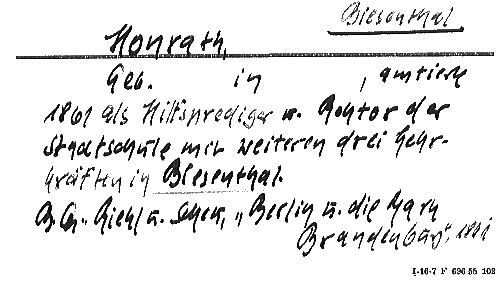 Biesenthal
Honrath,
Geb. in , amtiert
1861 als Hilfsprediger u. Rektor der
Stadtschule mit weiteren drei Lehr-
kräften in Biesenthal.
Riehl u. Scheu, „Berlin u. die Mark
Brandenburg", 1861
I-16-7 F 696 55 102